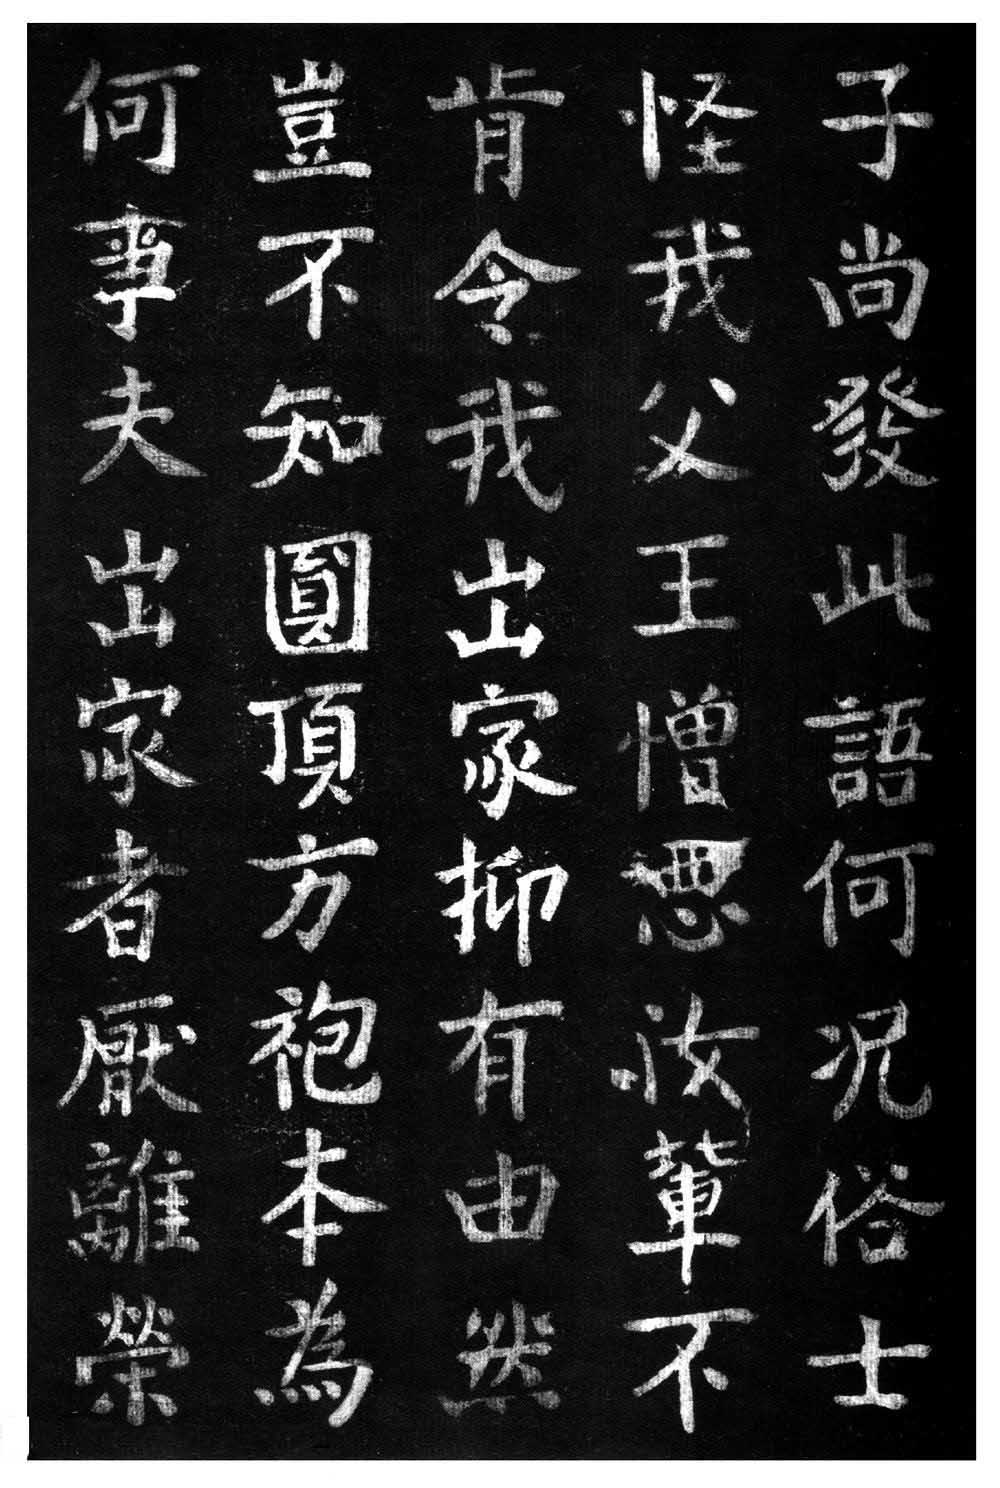 子尚發此語何況俗士
怪我父王憎惡汝輩不
肯令我出家抑有由然
豈不知圓頂方袍本為
何事夫出家者厭離榮